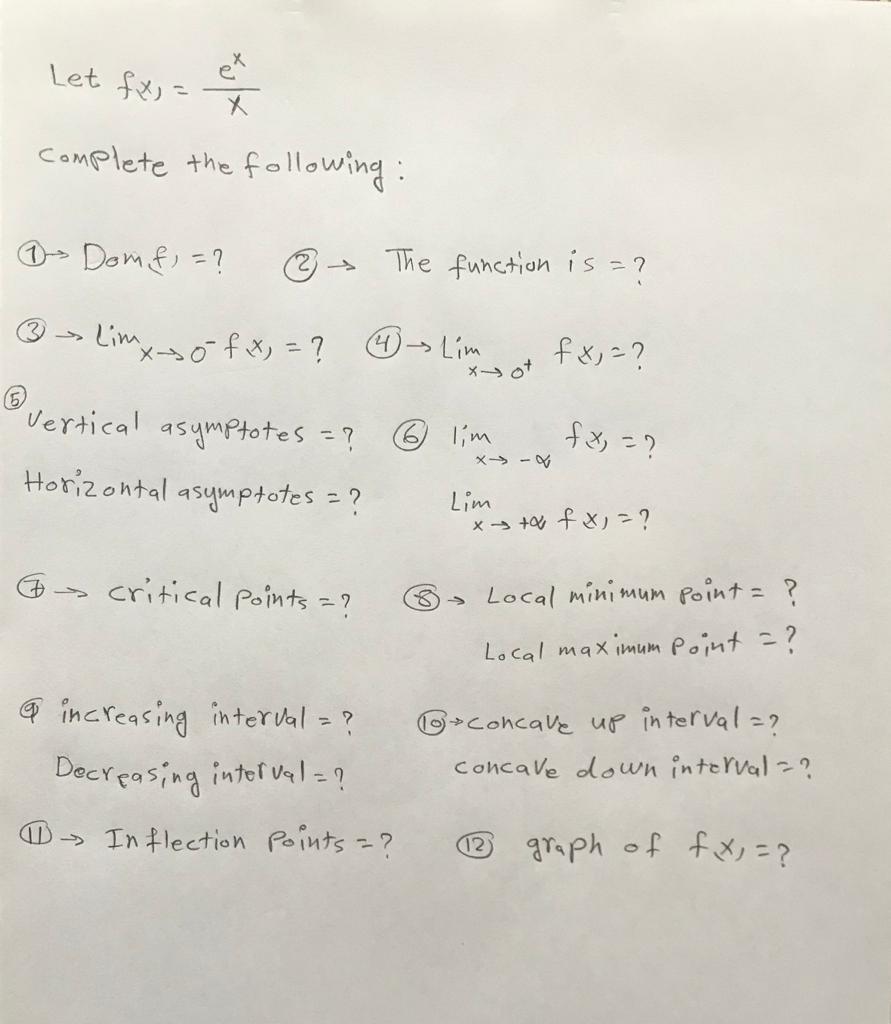 Let f(x) = e^x / x
Complete the following:
① → Dom f) = ? ② → The function is = ?
③ → Lim x→0⁻ f(x) = ? ④ → Lim x→0⁺ f(x) = ?
⑤ Vertical asymptotes = ? ⑥ lim x→-∞ f(x) = ?
Horizontal asymptotes = ? Lim x→+∞ f(x) = ?
⑦ → critical points = ? ⑧ → Local minimum point = ?
Local maximum point = ?
⑨ increasing interval = ? ⑩ → concave up interval = ?
Decreasing interval = ? concave down interval = ?
⑪ → Inflection points = ? ⑫ graph of f(x) = ?